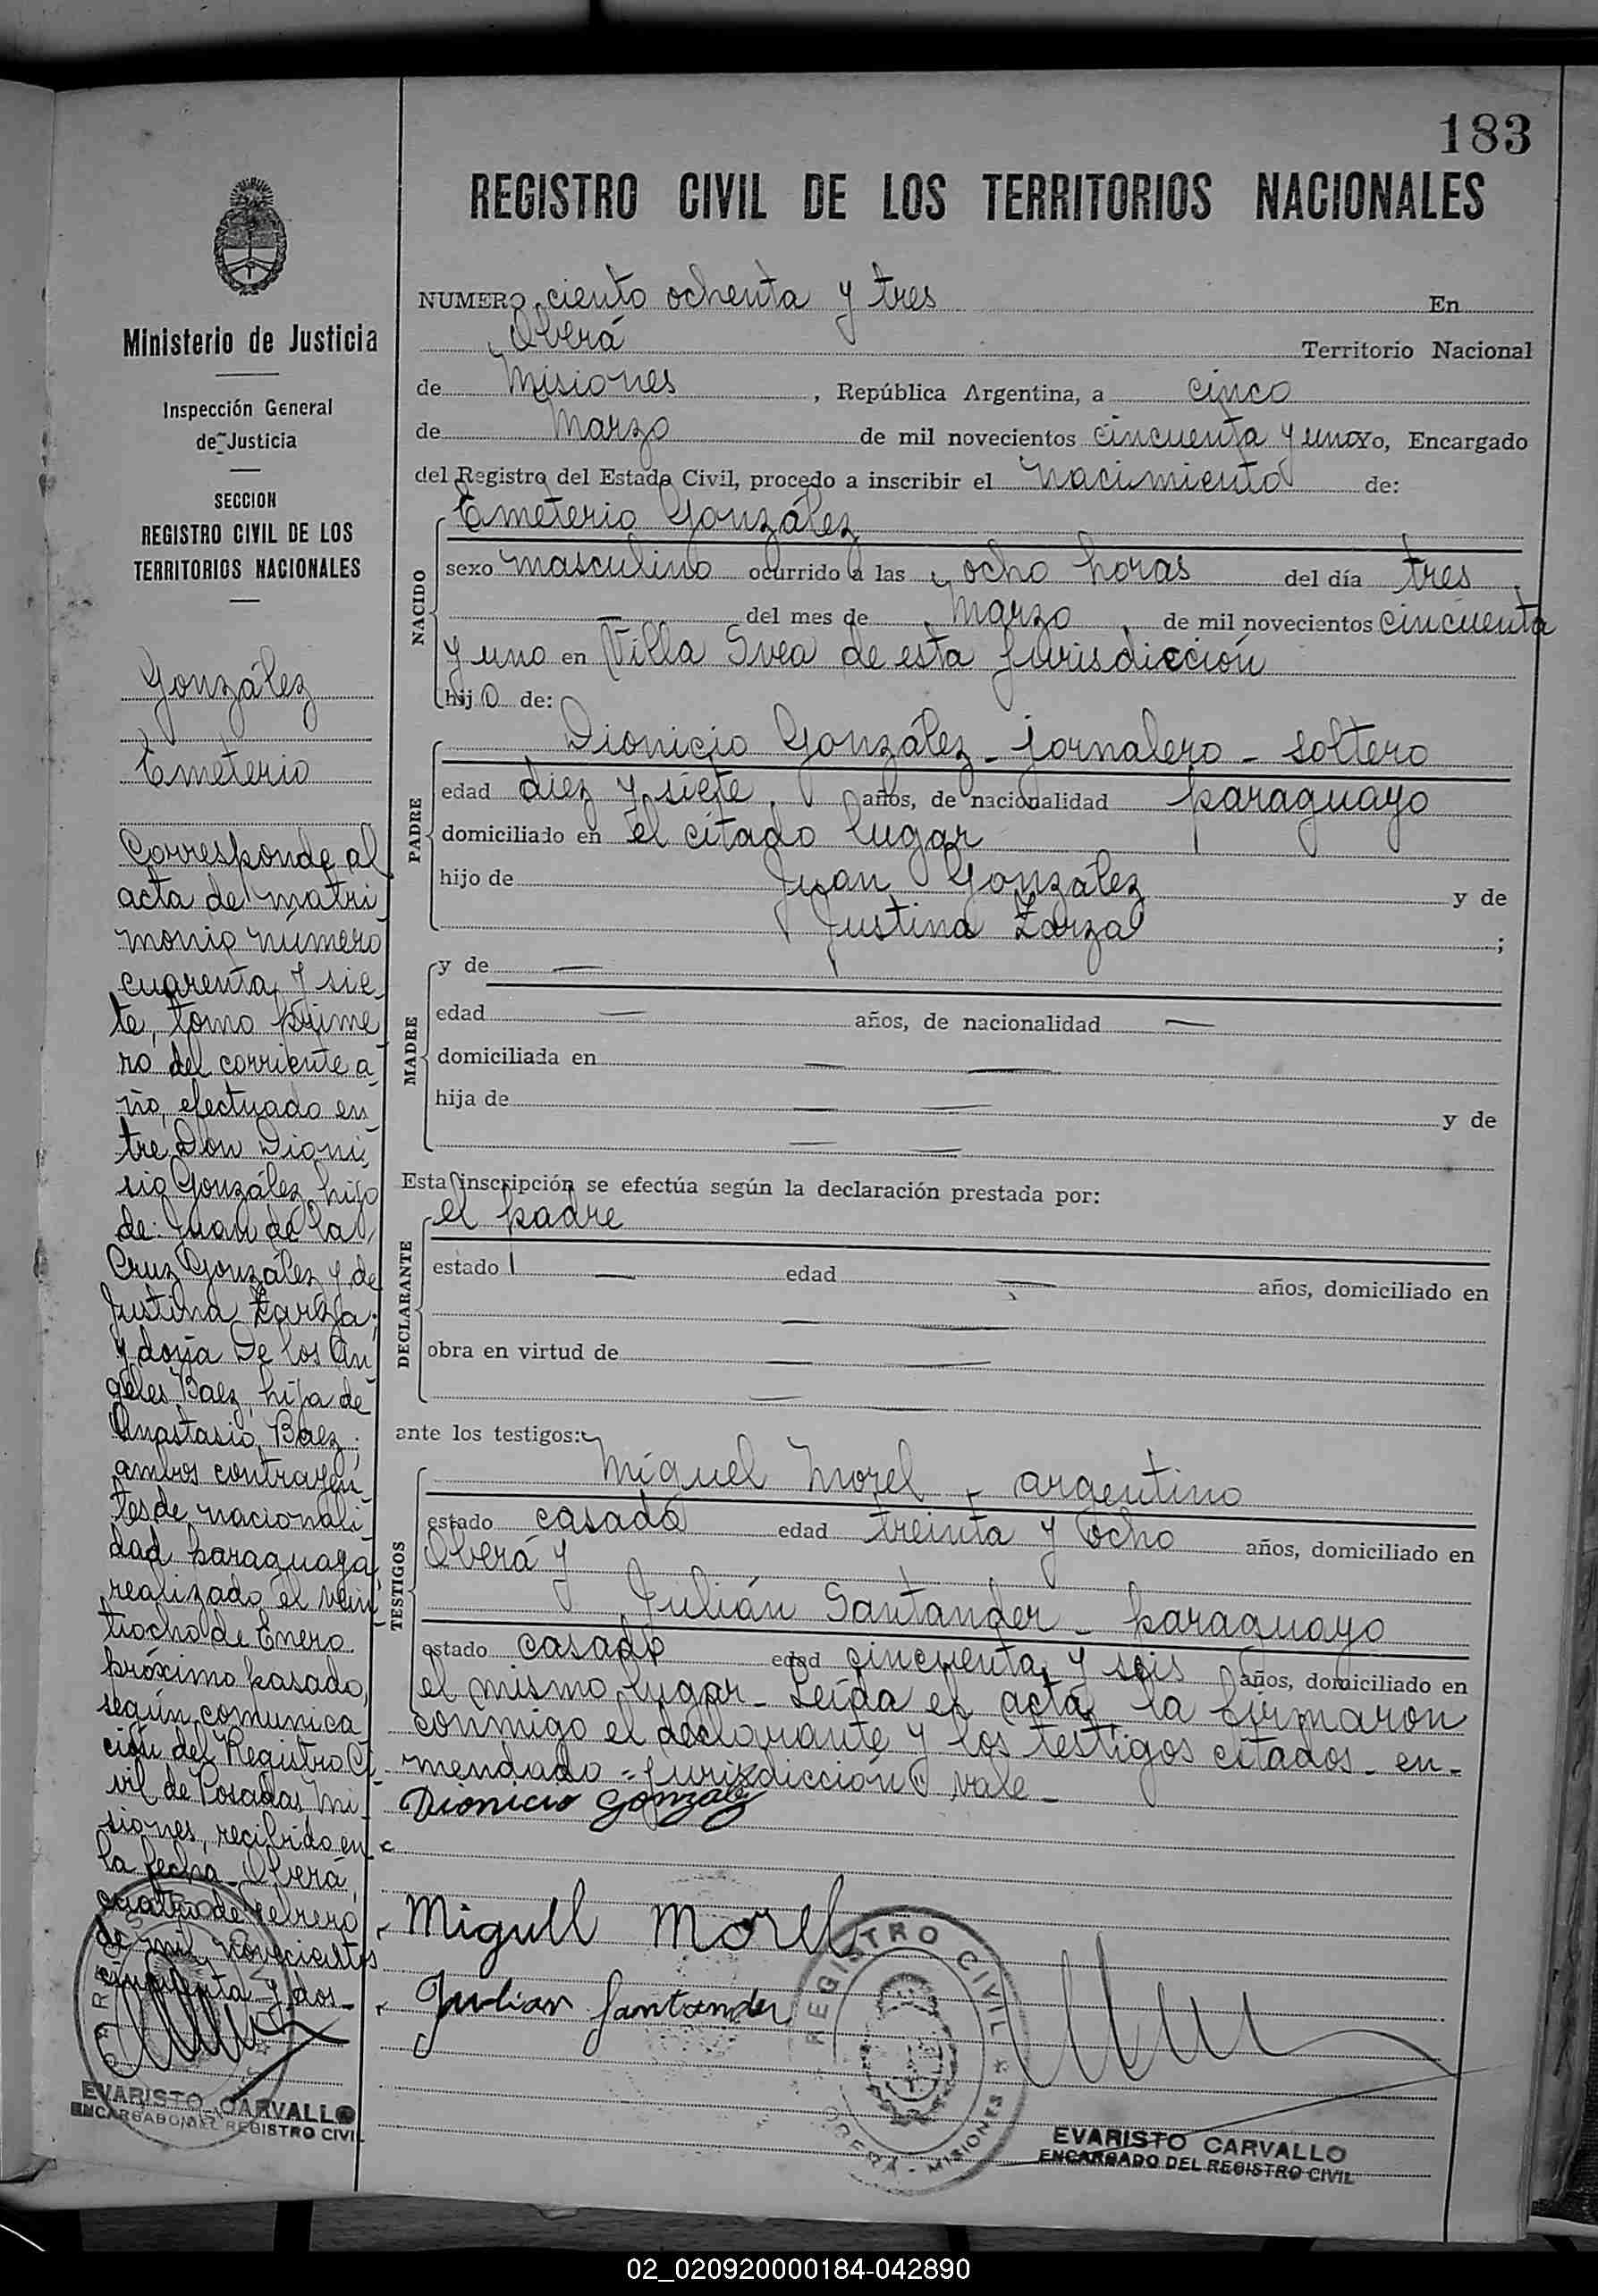 183
REGISTRO CIVIL DE LOS TERRITORIOS NACIONALES
Ministerio de Justicia
Inspección General
de Justicia
SECCION
REGISTRO CIVIL DE LOS
TERRITORIOS NACIONALES
González
Emeterio
Corresponde al
acta de matri
monio número
cuarenta y sie
te, tomo prime
ro del corriente a
ño, efectuado en
tre Don Dioni
sio González, hijo
de: Juan de la
Cruz González y de
Justina Zarza;
y doña De los An
geles Baez, hija de
Anastasia Baez;
ambos contrayen
tes de nacionali
dad paraguaya
realizado el vein
tiocho de Enero
próximo pasado,
según comunica
ción del Registro Ci
vil de Posadas Mi
siones, recibido en
la fecha. Oberá,
cuatro de febrero
de mil novecientos
cincuenta y dos-
EVARISTO CARVALLO
ENCARGADO DEL REGISTRO CIVIL
NUMERO ciento ochenta y tres En
Oberá Territorio Nacional
de Misiones, República Argentina, a cinco
de Marzo de mil novecientos cincuenta y uno Yo, Encargado
del Registro del Estado Civil, procedo a inscribir el nacimiento de:
NACIDO
Emeterio González
sexo masculino ocurrido a las ocho horas del día tres
del mes de Marzo de mil novecientos cincuenta
y uno en Villa Svea de esta jurisdicción
hijo de:
PADRE
Dionicio González - jornalero - soltero
edad diez y siete años, de nacionalidad paraguayo
domiciliado en el citado lugar
hijo de Juan González y de
Justina Zarza ;
MADRE
y de —
edad — años, de nacionalidad —
domiciliada en — —
hija de — — y de
— —
Esta inscripción se efectúa según la declaración prestada por:
DECLARANTE
el padre
estado — edad — años, domiciliado en
— —
obra en virtud de — —
— —
ante los testigos:
TESTIGOS
Miguel Morel - argentino
estado casado edad treinta y ocho años, domiciliado en
Oberá y
Julián Santander - paraguayo
estado casado edad cincuenta y seis años, domiciliado en
el mismo lugar - Leída el acta, la firmaron
conmigo el declarante y los testigos citados - en-
mendado = "jurisdicción" vale -
Dionicio Gonzalez
Miguel Morel
Julian Santander
REGISTRO CIVIL
OBERA - MISIONES
EVARISTO CARVALLO
ENCARGADO DEL REGISTRO CIVIL
02_020920000184-042890